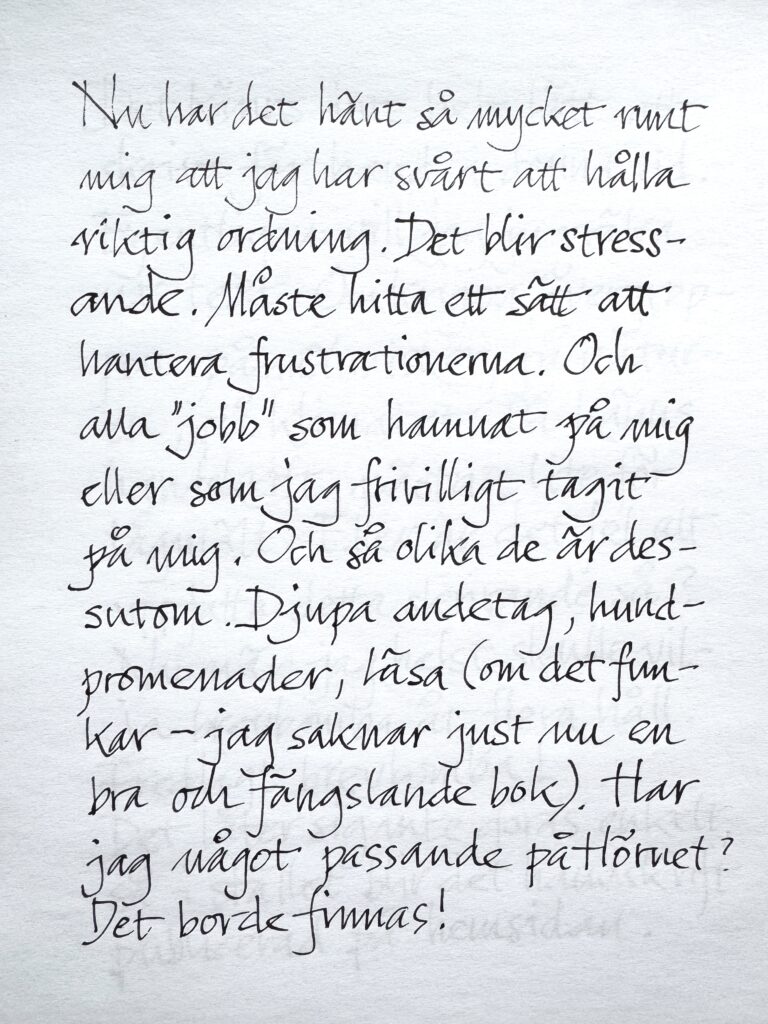 Nu har det hänt så mycket runt
mig att jag har svårt att hålla
riktig ordning. Det blir stress-
ande. Måste hitta ett sätt att
hantera frustrationerna. Och
alla "jobb" som hamnat på mig
eller som jag frivilligt tagit
på mig. Och så olika de är des-
sutom. Djupa andetag, hund-
promenader, läsa (om det fun-
kar – jag saknar just nu en
bra och fängslande bok). Har
jag något passande på Hörnet?
Det borde finnas!